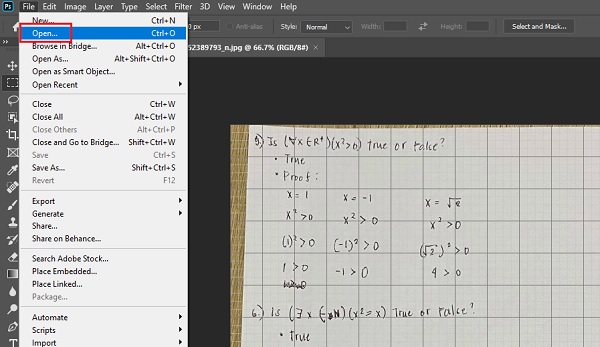 Ps File Edit Image Layer Type Select Filter 3D View Window Help
New... Ctrl+N
Open... Ctrl+O
Browse in Bridge... Alt+Ctrl+O
Open As... Alt+Shift+Ctrl+O
Open as Smart Object...
Open Recent
Close Ctrl+W
Close All Alt+Ctrl+W
Close Others Alt+Ctrl+P
Close and Go to Bridge... Shift+Ctrl+W
Save Ctrl+S
Save As... Shift+Ctrl+S
Revert F12
Export
Generate
Share...
Share on Behance...
Search Adobe Stock...
Place Embedded...
Place Linked...
Package...
Automate
Scripts
Import
0 px Anti-alias Style: Normal Width: Height: Select and Mask...
52389793_n.jpg @ 66.7% (RGB/8#)
5.) Is (∀x∈R⁺)(x²>0) true or false?
• True
• Proof:
x = 1 x = -1
x²>0 x² > 0 x² > 0
(1)²>0 (-1)² > 0 (√2)² > 0
1 > 0 -1 > 0 4 > 0
6.) Is (∃x (x² = x) True or false?
• True